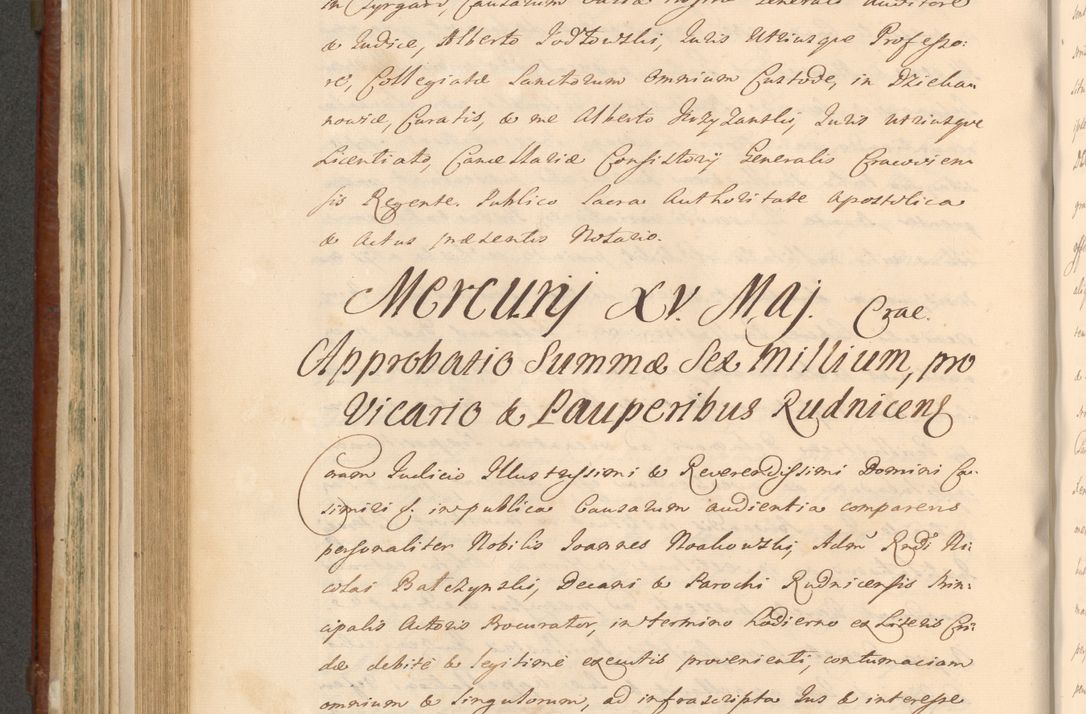 & Judice, Alberto Jodłowski, Juris Utriusque Professo:
re, Collegiatæ Sanctorum Omnium Custode, in Dziekan
nowice, Curatis, & me Alberto Krzyżanski, Juris utriusque
Licentiato, Cancellariæ Consistorij Generalis Cracovien
sis Regente. Publico Sacra Authoritate Apostolica
& Actus præsentis Notario.
Mercurij XV. Maj. Crac.
Approbatio Summæ Sex Millium, pro
Vicario & Pauperibus Rudnicens
Coram Judicio Illustrissimi & Reverendissimi Domini Ca-
simiri f. in publica Causarum audientia comparens
personaliter Nobilis Joannes Noakowski, Adm Rndi Ni
colai Batczynski, Decani & Parochi Rudnicensis Prin:
cipalis Actoris Procurator, in termino hodierno ex Literis Cri:
dæ debite & legitime executis provenienti, contumaciam
omnium & singulorum, ad infrascripta Jus & interesse